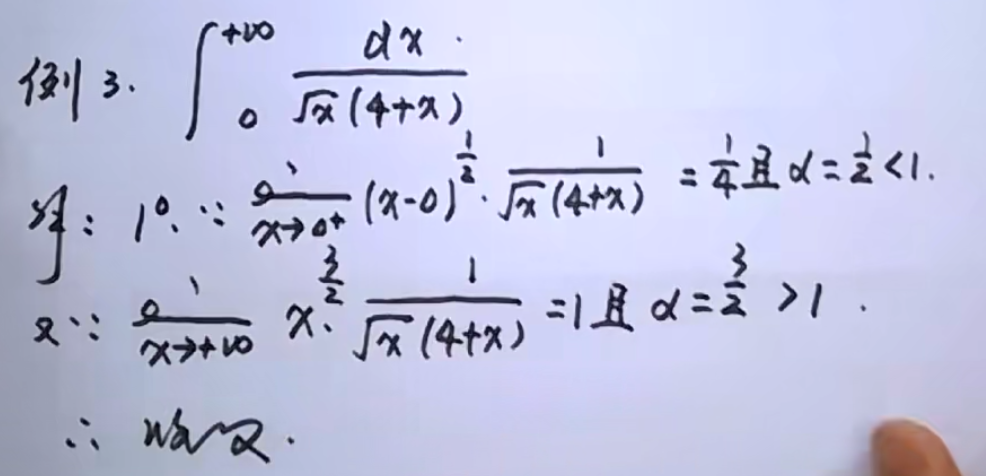 例3. ∫₀^{+∞} dx / (√x (4+x))
解: 1°. ∵ lim_{x→0⁺} (x-0)^{1/2} · 1 / (√x (4+x)) = 1/4 且 α = 1/2 < 1.
2 ∵ lim_{x→+∞} x^{3/2} · 1 / (√x (4+x)) = 1 且 α = 3/2 > 1.
∴ 收敛.